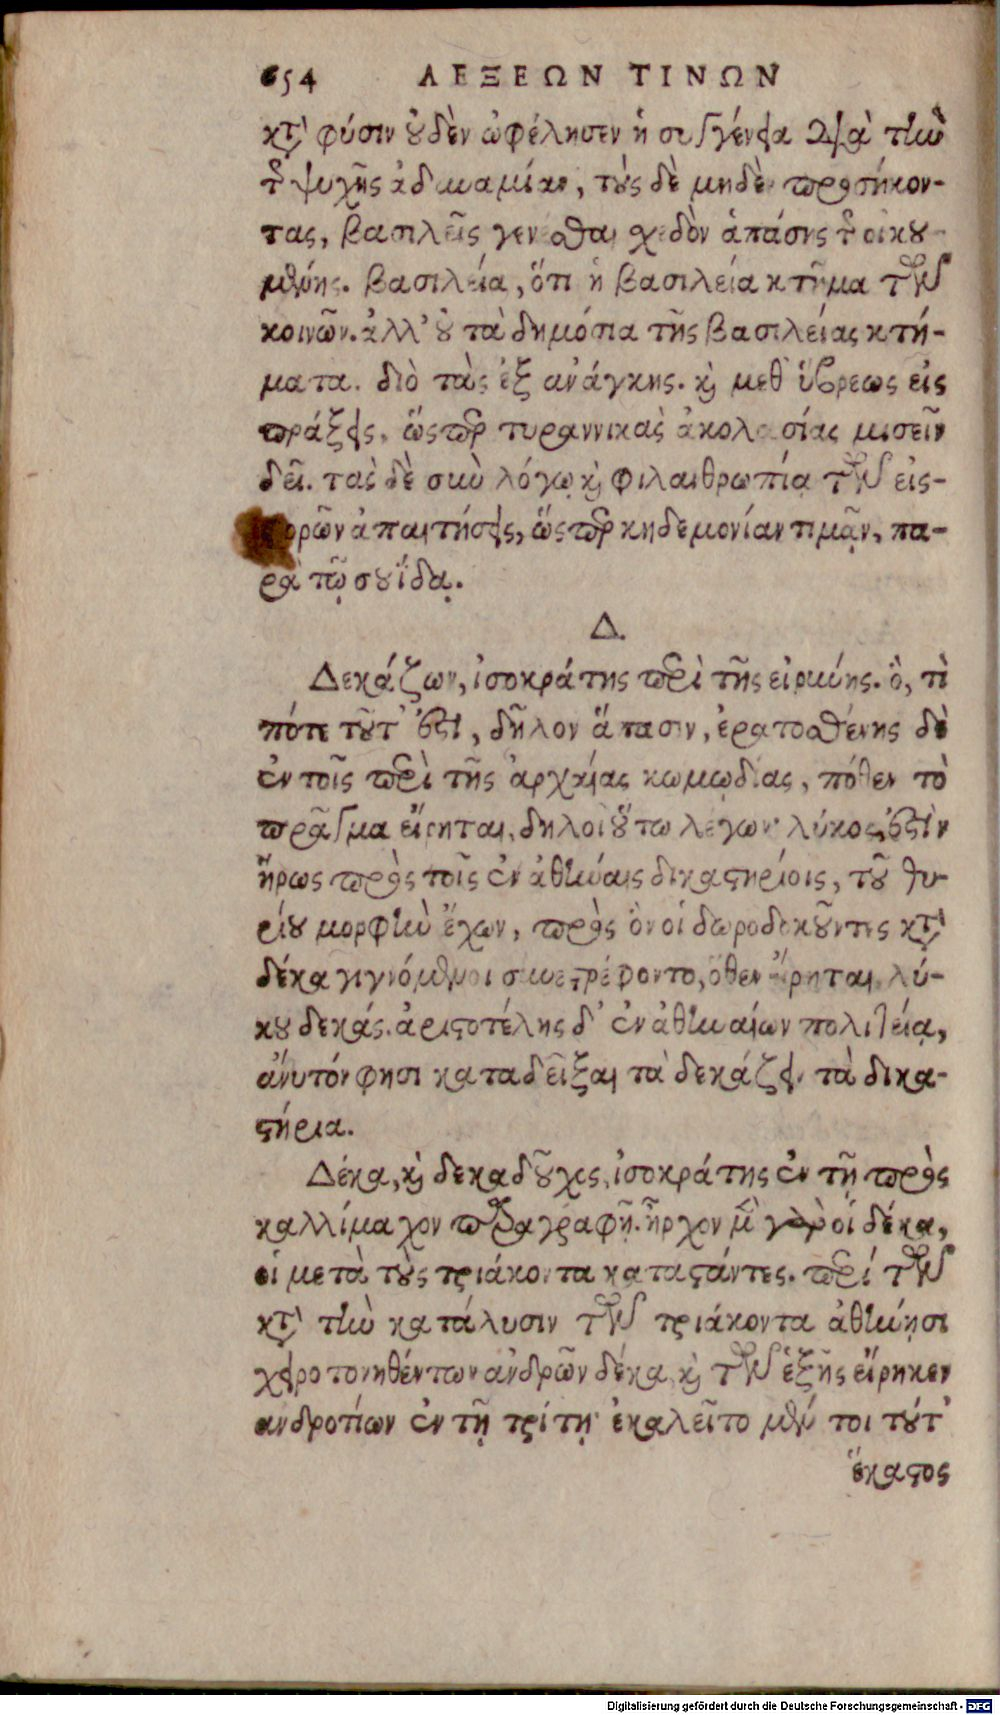 654 ΛΕΞΕΩΝ ΤΙΝΩΝ
κτ̀ φύσιν οὐδὲν ὠφέλησεν ἡ συγγένεια διὰ τὴν
τ῀ ψυχῆς ἀδυναμίαν, τοὺς δὲ μηδὲν προσήκον-
τας, βασιλεῖς γενέσθαι σχεδὸν ἁπάσης τ῀ οἰκου-
μένης. βασιλεία, ὅτι ἡ βασιλεία κτῆμα τῶν
κοινῶν. ἀλλ' οὐ τὰ δημόσια τῆς βασιλείας κτή-
ματα. διὸ τὰς ἐξ ἀνάγκης. καὶ μεθ' ὕβρεως εἰς
πράξεις, ὥσπερ τυραννικὰς ἀκολασίας μισεῖν
δεῖ. τὰς δὲ σὺν λόγῳ καὶ φιλανθρωπίᾳ τῶν εἰσ-
φορῶν ἀπαιτήσεις, ὥσπερ κηδεμονίαν τιμᾷν, πα-
ρὰ τῷ σουΐδᾳ.
Δ.
Δεκάζων, ἰσοκράτης περὶ τῆς εἰρήνης. ὅ, τὶ
πότε τοῦτ' ἐστι, δῆλον ἅπασιν, ἐρατοσθένης δὲ
ἐν τοῖς περὶ τῆς ἀρχαίας κωμῳδίας, πόθεν τὸ
πρᾶγμα εἴρηται, δηλοῖ οὕτω λέγων· λύκος ἐστὶν
ἥρως πρὸς τοῖς ἐν ἀθήναις δικαστηρίοις, τοῦ θη-
ρίου μορφὴν ἔχων, πρὸς ὃν οἱ δωροδοκοῦντες κτ̀
δέκα γιγνόμενοι συνεστρέφοντο, ὅθεν εἴρηται λύ-
κου δεκάς. ἀριστοτέλης δ' ἐν ἀθηναίων πολιτείᾳ,
ἄνυτόν φησι καταδεῖξαι τὰ δεκάζειν τὰ δικα-
στήρια.
Δέκα, καὶ δεκαδοῦχος, ἰσοκράτης ἐν τῇ πρὸς
καλλίμαχον παραγραφῇ. ἦρχον μὲν γὰρ οἱ δέκα,
οἱ μετὰ τοὺς τριάκοντα καταστάντες. περί τῶν
κτ̀ τὴν κατάλυσιν τῶν τριάκοντα ἀθήνησι
χειροτονηθέντων ἀνδρῶν δέκα, καὶ τῶν ἑξῆς εἴρηκεν
ἀνδροτίων ἐν τῇ τρίτῃ· ἐκαλεῖτο μέν τοι τούτ'
ἕκαστος
Digitalisierung gefördert durch die Deutsche Forschungsgemeinschaft - DFG